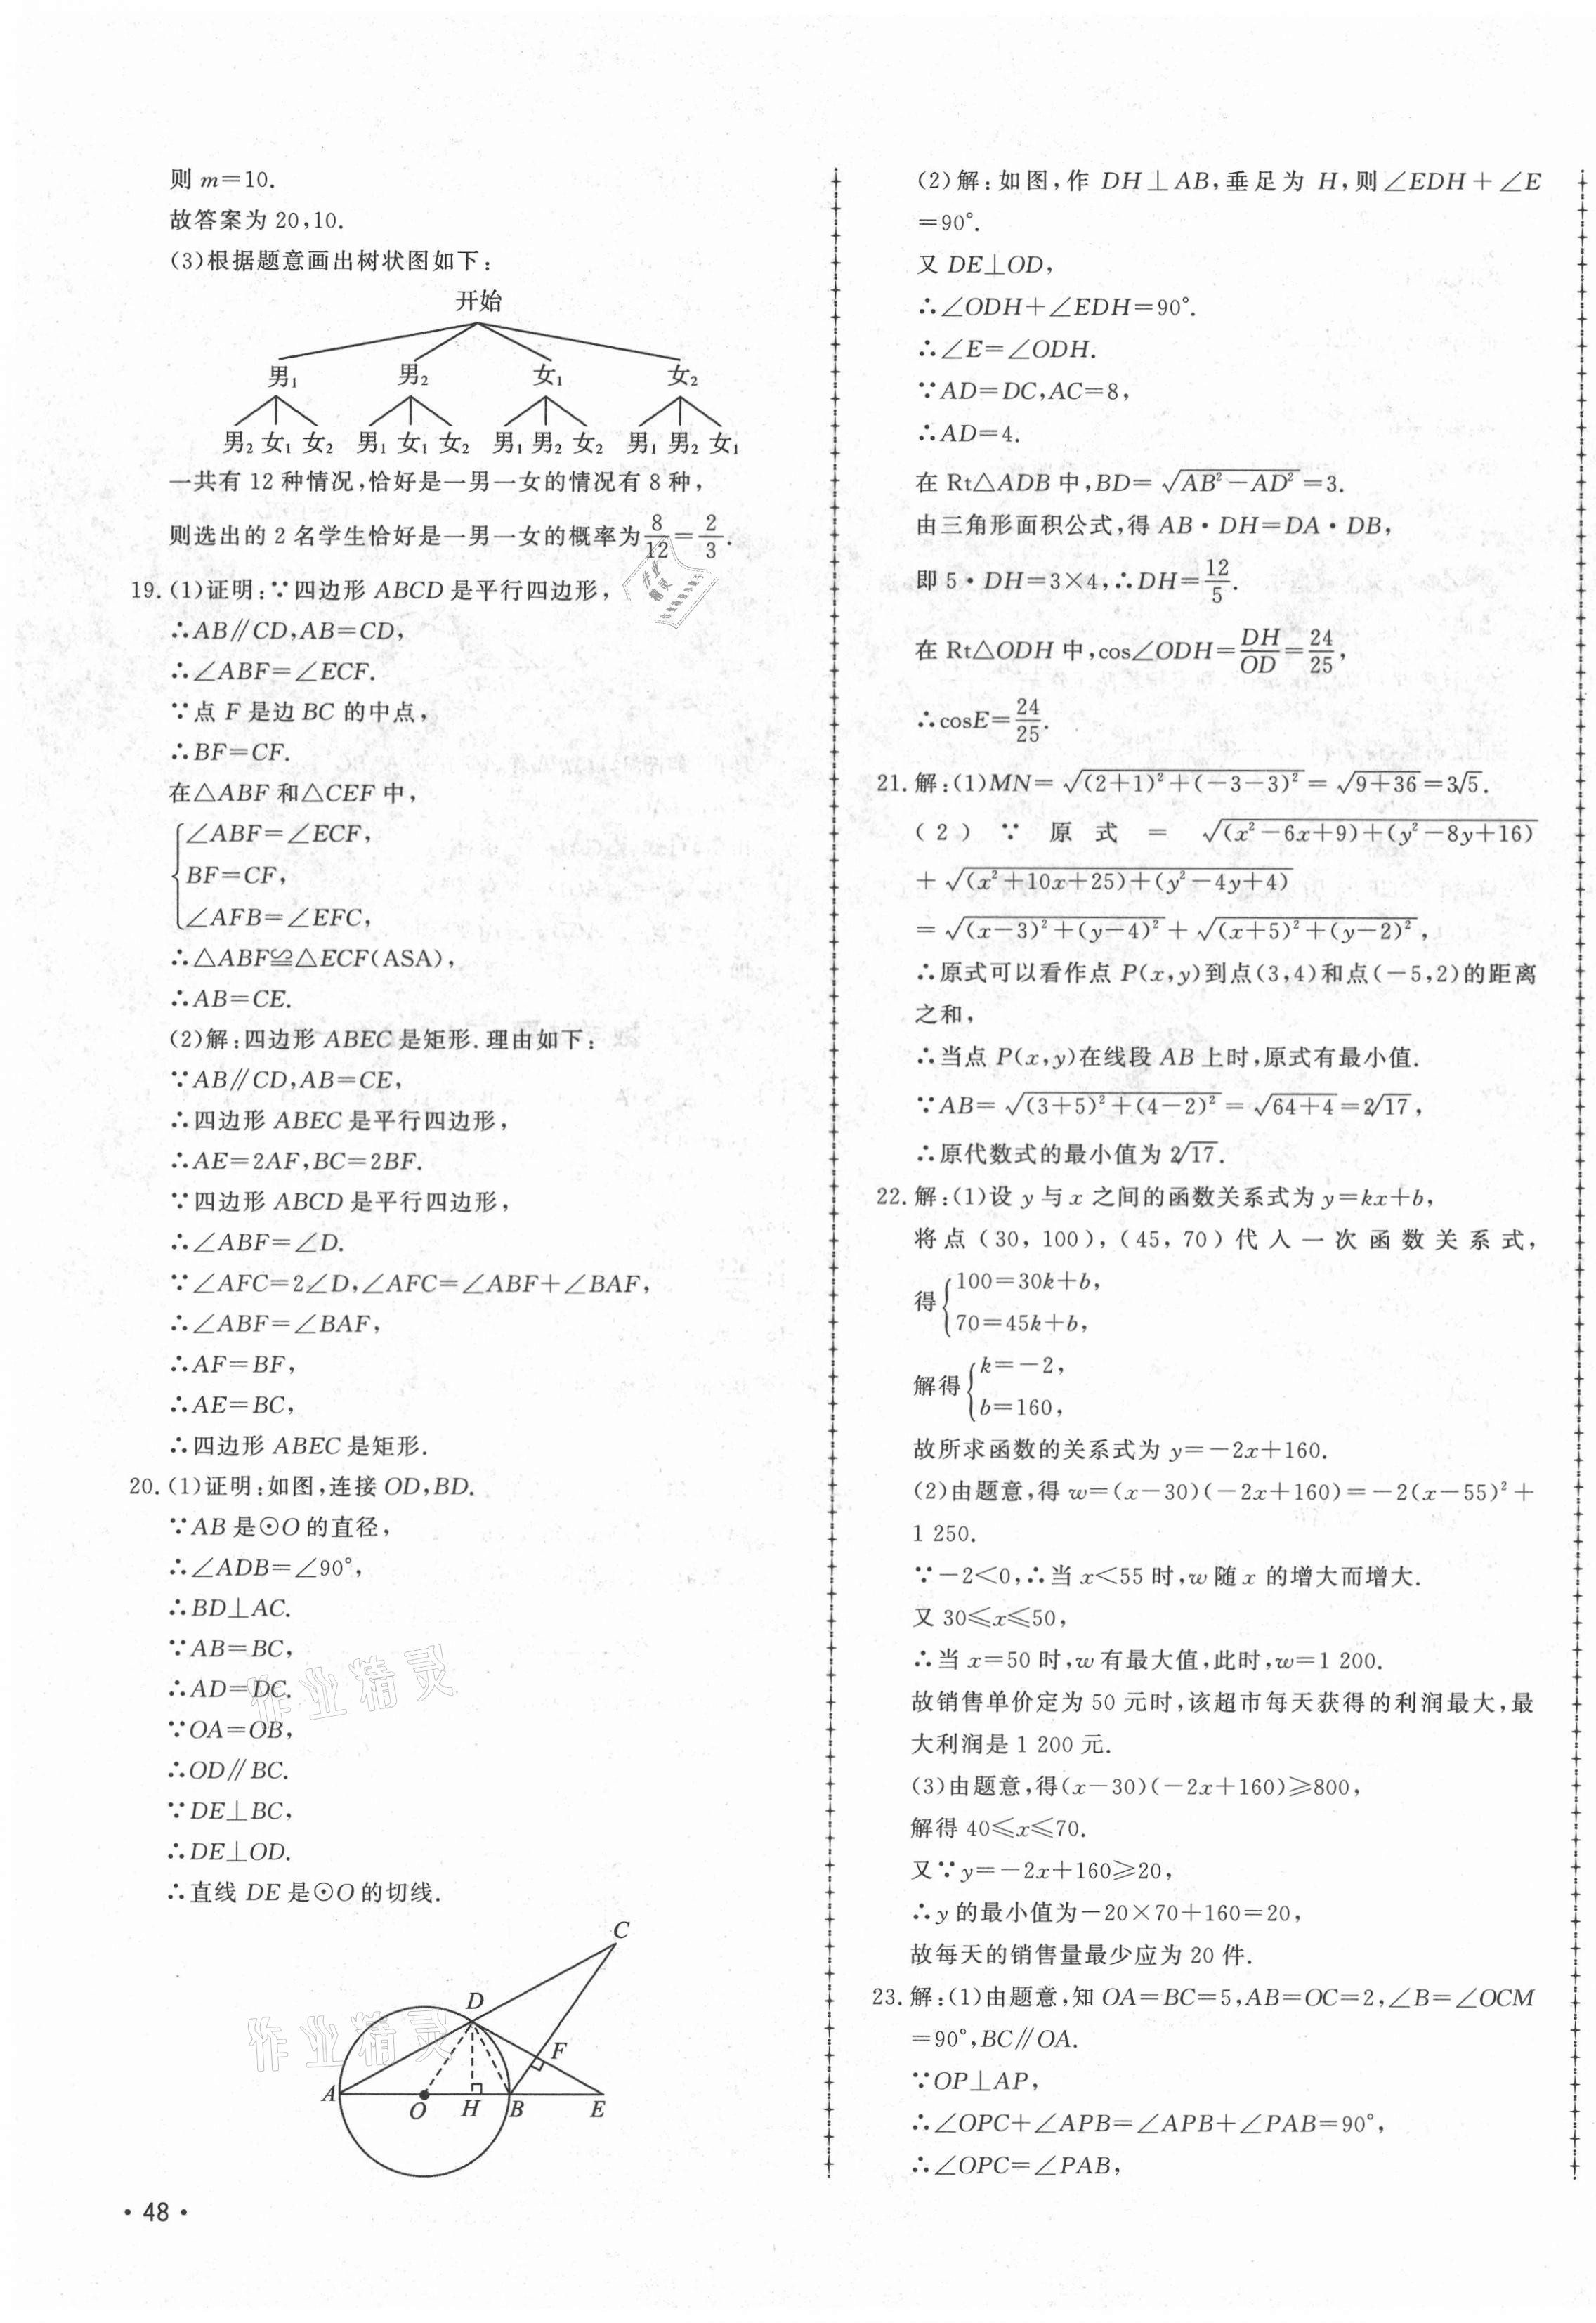 则 m=10.
故答案为 20,10.
(3)根据题意画出树状图如下:
开始
男₁ 男₂ 女₁ 女₂
男₂ 女₁ 女₂ 男₁ 女₁ 女₂ 男₁ 男₂ 女₂ 男₁ 男₂ 女₁
一共有 12 种情况,恰好是一男一女的情况有 8 种,
则选出的 2 名学生恰好是一男一女的概率为 8/12=2/3.
19. (1)证明:∵四边形 ABCD 是平行四边形,
∴AB∥CD,AB=CD,
∴∠ABF=∠ECF.
∵点 F 是边 BC 的中点,
∴BF=CF.
在△ABF 和△CEF 中,
∠ABF=∠ECF,
BF=CF,
∠AFB=∠EFC,
∴△ABF≌△ECF(ASA),
∴AB=CE.
(2)解:四边形 ABEC 是矩形.理由如下:
∵AB∥CD,AB=CE,
∴四边形 ABEC 是平行四边形,
∴AE=2AF,BC=2BF.
∵四边形 ABCD 是平行四边形,
∴∠ABF=∠D.
∵∠AFC=2∠D,∠AFC=∠ABF+∠BAF,
∴∠ABF=∠BAF,
∴AF=BF,
∴AE=BC,
∴四边形 ABEC 是矩形.
20. (1)证明:如图,连接 OD,BD.
∵AB 是⊙O 的直径,
∴∠ADB=∠90°,
∴BD⊥AC.
∵AB=BC,
∴AD=DC.
∵OA=OB,
∴OD∥BC.
∵DE⊥BC,
∴DE⊥OD.
∴直线 DE 是⊙O 的切线.
C
D
F
A
O H B E
作业精灵
作业精灵
作业精灵
· 48 ·
(2)解:如图,作 DH⊥AB,垂足为 H,则∠EDH+∠E
=90°.
又 DE⊥OD,
∴∠ODH+∠EDH=90°.
∴∠E=∠ODH.
∵AD=DC,AC=8,
∴AD=4.
在 Rt△ADB 中,BD=√(AB²-AD²)=3.
由三角形面积公式,得 AB·DH=DA·DB,
即 5·DH=3×4,∴DH=12/5.
在 Rt△ODH 中,cos∠ODH=DH/OD=24/25,
∴cosE=24/25.
21. 解:(1)MN=√((2+1)²+(-3-3)²)=√(9+36)=3√5.
(2)∵原式=√((x²-6x+9)+(y²-8y+16))
+√((x²+10x+25)+(y²-4y+4))
=√((x-3)²+(y-4)²)+√((x+5)²+(y-2)²),
∴原式可以看作点 P(x,y)到点(3,4)和点(-5,2)的距离
之和,
∴当点 P(x,y)在线段 AB 上时,原式有最小值.
∵AB=√((3+5)²+(4-2)²)=√(64+4)=2√17,
∴原代数式的最小值为 2√17.
22. 解:(1)设 y 与 x 之间的函数关系式为 y=kx+b,
将点(30,100),(45,70)代入一次函数关系式,
得{100=30k+b,
70=45k+b,
解得{k=-2,
b=160,
故所求函数的关系式为 y=-2x+160.
(2)由题意,得 w=(x-30)(-2x+160)=-2(x-55)²+
1 250.
∵-2<0,∴当 x<55 时,w 随 x 的增大而增大.
又 30≤x≤50,
∴当 x=50 时,w 有最大值,此时,w=1 200.
故销售单价定为 50 元时,该超市每天获得的利润最大,最
大利润是 1 200 元.
(3)由题意,得(x-30)(-2x+160)≥800,
解得 40≤x≤70.
又∵y=-2x+160≥20,
∴y 的最小值为-20×70+160=20,
故每天的销售量最少应为 20 件.
23. 解:(1)由题意,知 OA=BC=5,AB=OC=2,∠B=∠OCM
=90°,BC∥OA.
∵OP⊥AP,
∴∠OPC+∠APB=∠APB+∠PAB=90°,
∴∠OPC=∠PAB,